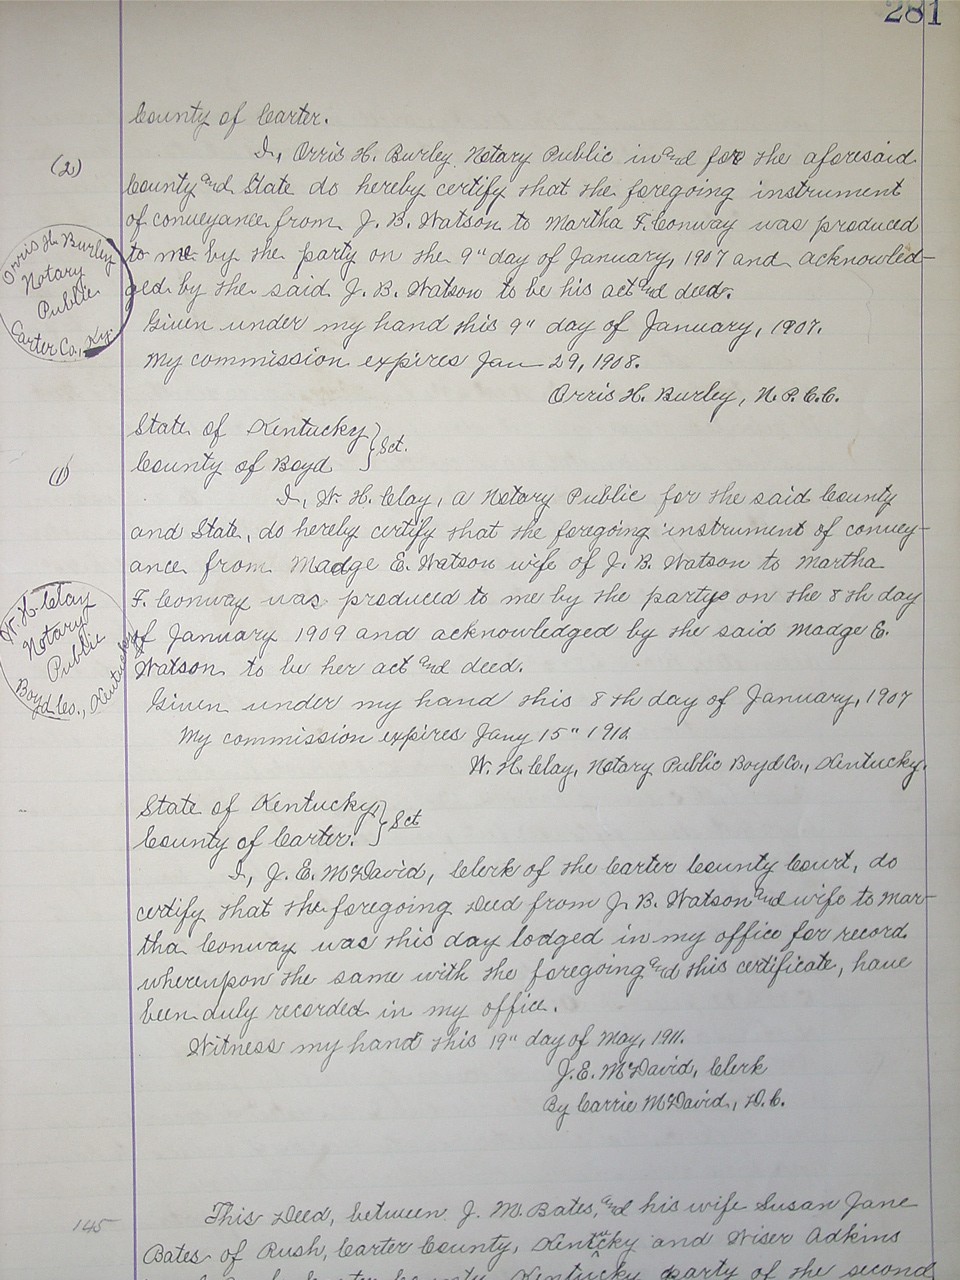 281
County of Carter.
(2)
I, Orris H. Burley Notary Public in and for the aforesaid
County and State do hereby certify that the foregoing instrument
of conveyance from J. B. Watson to Martha F. Conway was produced
to me by the party on the 9" day of January, 1907 and acknowled-
ged by the said J. B. Watson to be his act and deed.
Orris H. Burley
Notary
Public
Carter Co., Ky.
Given under my hand this 9" day of January, 1907.
My commission expires Jan 29, 1908.
Orris H. Burley, N. P. C. C.
State of Kentucky } Sct.
County of Boyd
(1)
I, W. H. Clay, a Notary Public for the said County
and State, do hereby certify that the foregoing instrument of convey-
ance from Madge E. Watson wife of J. B. Watson to Martha
F. Conway was produced to me by the partys on the 8th day
of January 1909 and acknowledged by the said Madge E.
Watson to be her act and deed.
W. H. Clay
Notary
Public
Boyd Co., Kentucky
Given under my hand this 8th day of January, 1907
My commission expires Jany 15" 1910.
W. H. Clay, Notary Public Boyd Co., Kentucky.
State of Kentucky } Sct
County of Carter.
I, J. E. McDavid, Clerk of the Carter County Court, do
certify that the foregoing Deed from J. B. Watson and wife to Mar-
tha Conway was this day lodged in my office for record
whereupon the same with the foregoing and this certificate, have
been duly recorded in my office.
Witness my hand this 19" day of May, 1911.
J. E. McDavid, Clerk
By Carrie McDavid, D. C.
145
This Deed, between J. M. Bates, and his wife Susan Jane
Bates of Rush, Carter County, Kentucky and Wiser Adkins
County, Kentucky party of the second